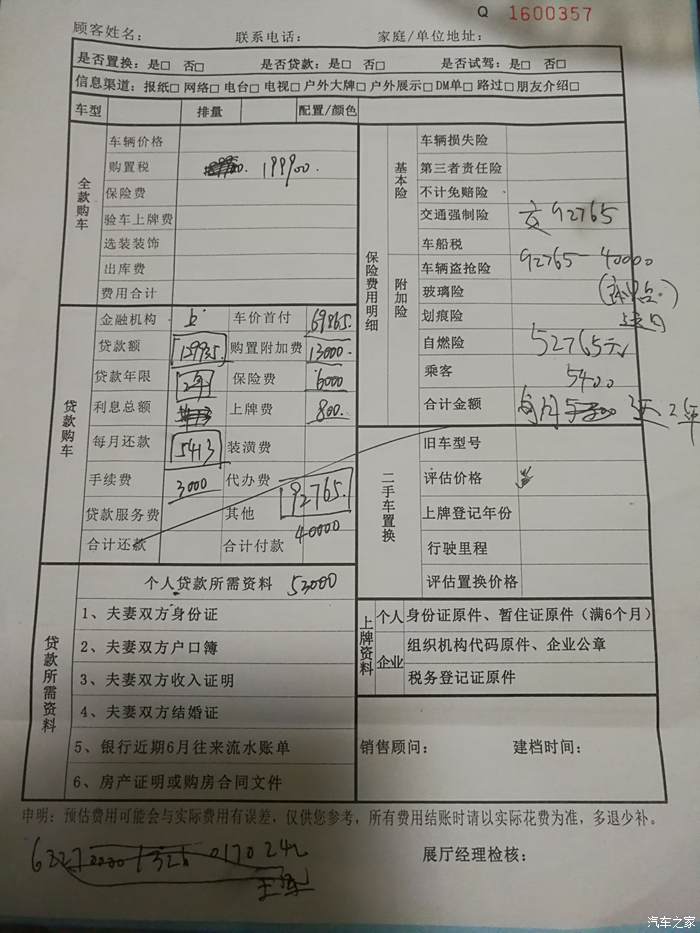 Q 1600357
顾客姓名： 联系电话： 家庭/单位地址：
是否置换：是□ 否□ 是否贷款：是□ 否□ 是否试驾：是□ 否□
信息渠道：报纸□ 网络□ 电台□ 电视□ 户外大牌□ 户外展示□ DM单□ 路过□ 朋友介绍□
车型 排量 配置/颜色
全款购车
车辆价格
购置税 199900.
保险费
验车上牌费
选装装饰
出库费
费用合计
保险费用明细
基本险
车辆损失险
第三者责任险
不计免赔险
交通强制险 交92765
车船税
附加险
车辆盗抢险 92765-40000
玻璃险
划痕险
自燃险 52765元
乘客 5400
合计金额
贷款购车
金融机构 车价首付 69965.
贷款额 129935. 购置附加费 13000.
贷款年限 2年 保险费 6000
利息总额 上牌费 800.
每月还款 5413 装潢费
手续费 3000 代办费
92765.
贷款服务费 其他
40000
合计还款 合计付款
二手车置换
旧车型号
评估价格
上牌登记年份
行驶里程
评估置换价格
贷款所需资料
个人贷款所需资料 53000
1、夫妻双方身份证
2、夫妻双方户口簿
3、夫妻双方收入证明
4、夫妻双方结婚证
5、银行近期6月往来流水账单
6、房产证明或购房合同文件
上牌资料
个人 身份证原件、暂住证原件（满6个月）
企业 组织机构代码原件、企业公章
税务登记证原件
销售顾问： 建档时间：
申明：预估费用可能会与实际费用有误差，仅供您参考，所有费用结账时请以实际花费为准，多退少补。
展厅经理检核：
汽车之家